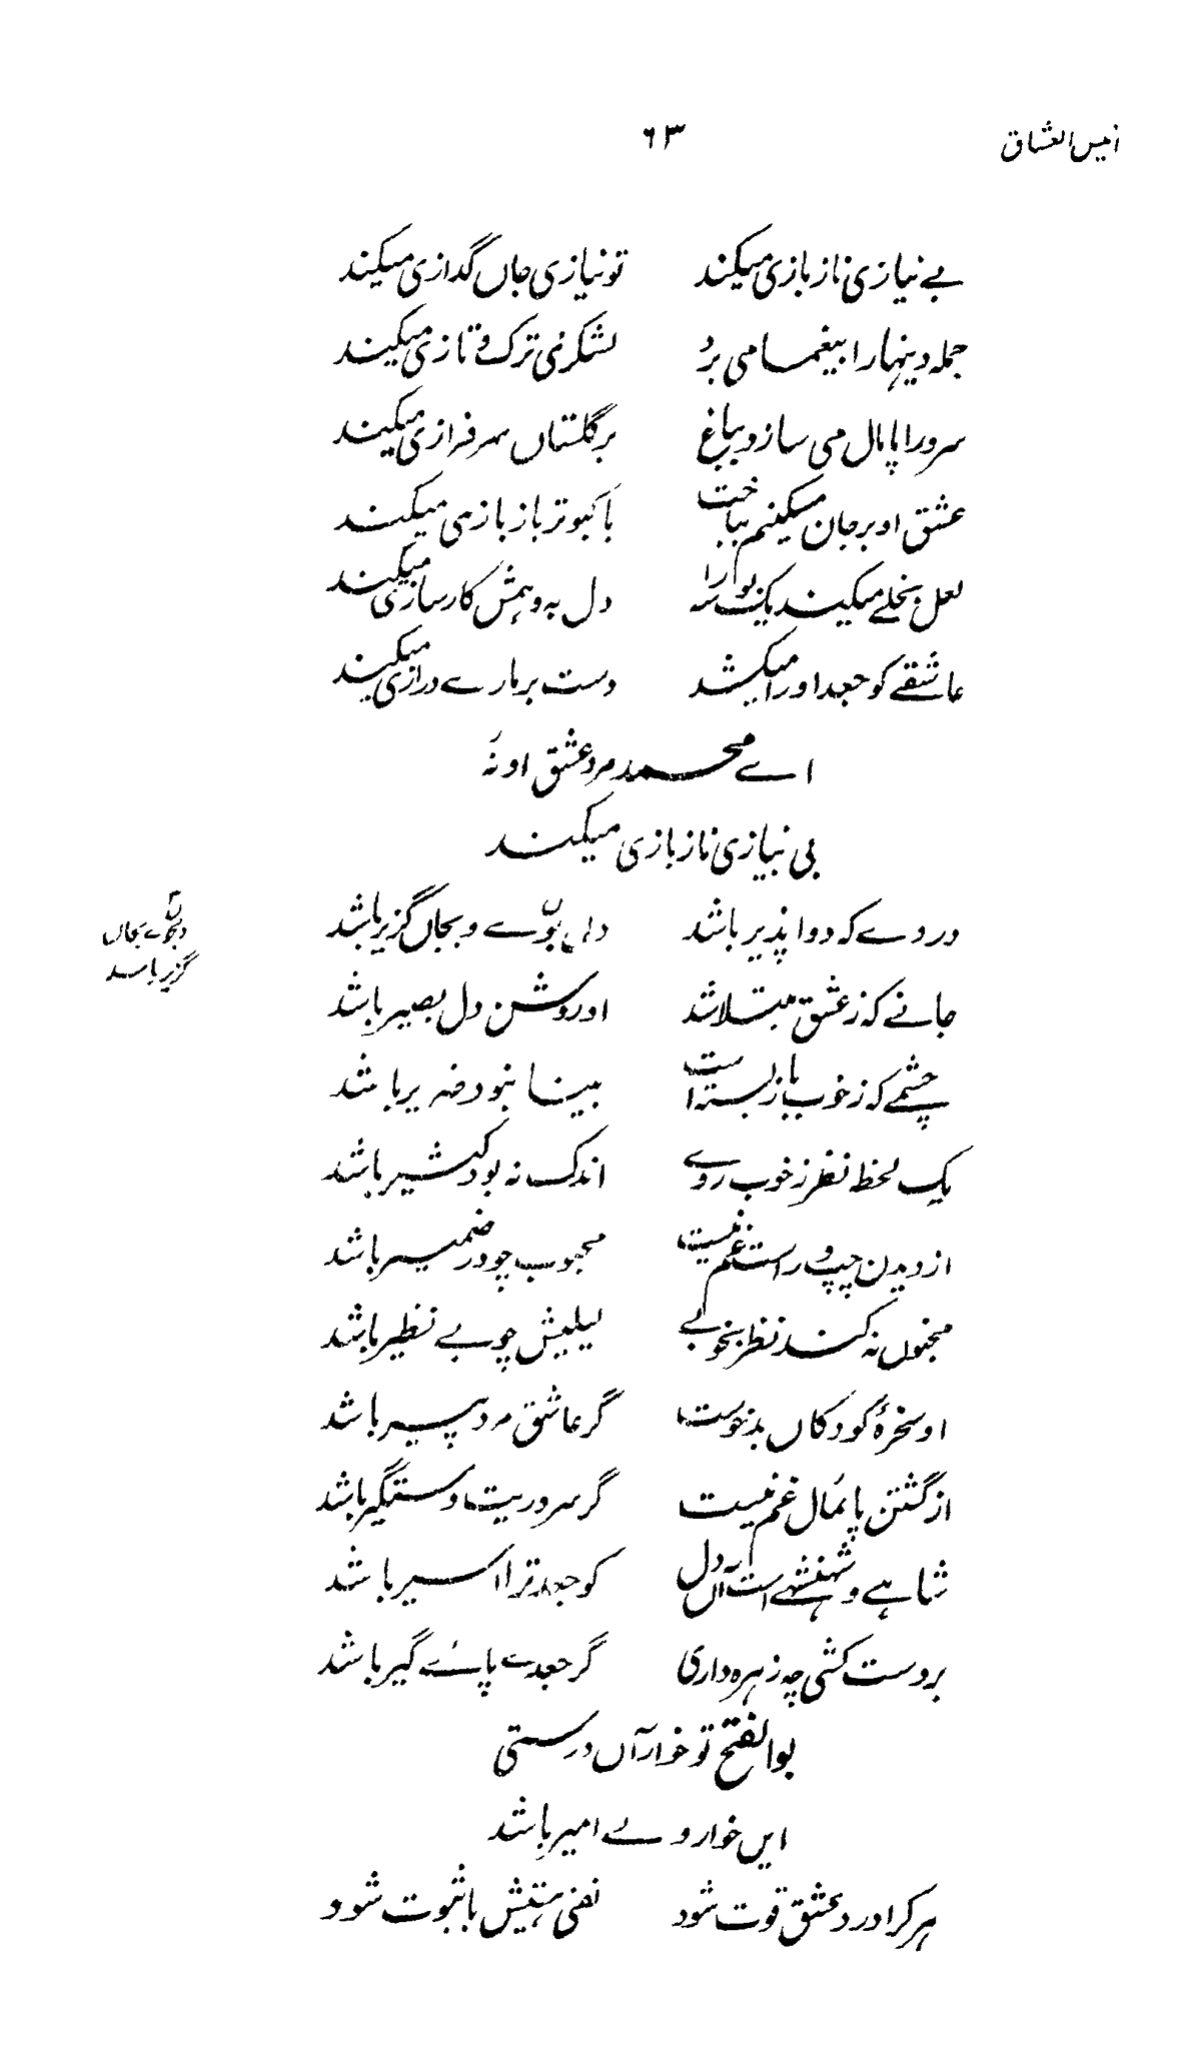 انیس العشاق ۶۳
بے نیازی ناز بازی میکند تو نیازی جاں گدازی میکند
جملہ دینہا را بیغما می برد لشکری ترک و تازی میکند
سرو را پامال می سازد بباغ بر گلستاں سرفرازی میکند
عشق او بر جان میکنم بباخت با کبوتر باز بازی میکند
لعل بخلے میکند یک بوسہ را دل بہ وہمش کارسازی میکند
عاشقے کو جعد او را میکشد دست بر مارے درازی میکند
اے محمد مرد عشق او نۂ
بی نیازی ناز بازی میکند
دردے کہ دوا پذیر باشد وبجاں گزیر باشد
دبجوے بجاں
گزیر باشد
جانے کہ ز عشق مبتلا شد او روشن دل بصیر باشد
چشمے کہ ز خوب باز بستہ است بینا نبود ضریر باشد
یک لحظ نظر ز خوب روے اندک نہ بود کثیر باشد
از دیدن چپ و راست غم نیست محبوب چو در ضمیر باشد
مجنوں نہ کند نظر بخوبے لیلیش چو بے نظیر باشد
او سخرۂ کودکاں بدخوست گر عاشق مرد پیر باشد
از گشتن پائمال غم نیست گر سروریت دستگیر باشد
شاہے و شہنشہے است آں دل کو جعد ترا اسیر باشد
بر دست کشی چہ زہرہ داری گر جعدے پائے گیر باشد
بوالفتح تو خوار آں درستی
ایں خوار وے امیر باشد
ہر کرا درد عشق قوت شود نفی ہستیش با ثبوت شود